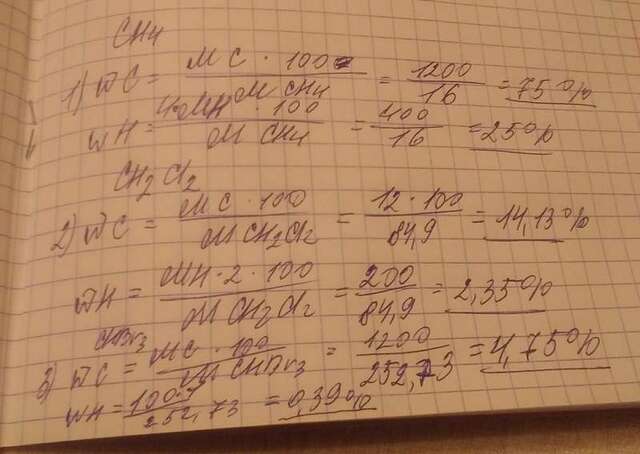 CH4
1) WC = MC · 100 / M CH4 = 1200 / 16 = 75%
WH = 4 · MH · 100 / M CH4 = 400 / 16 = 25%
CH2Cl2
2) WC = MC · 100 / M CH2Cl2 = 12 · 100 / 84,9 = 14,13%
WH = MH · 2 · 100 / M CH2Cl2 = 200 / 84,9 = 2,35%
CHBr3
3) WC = MC · 100 / M CHBr3 = 1200 / 252,73 = 4,75%
WH = 100 · 1 / 252,73 = 0,39%